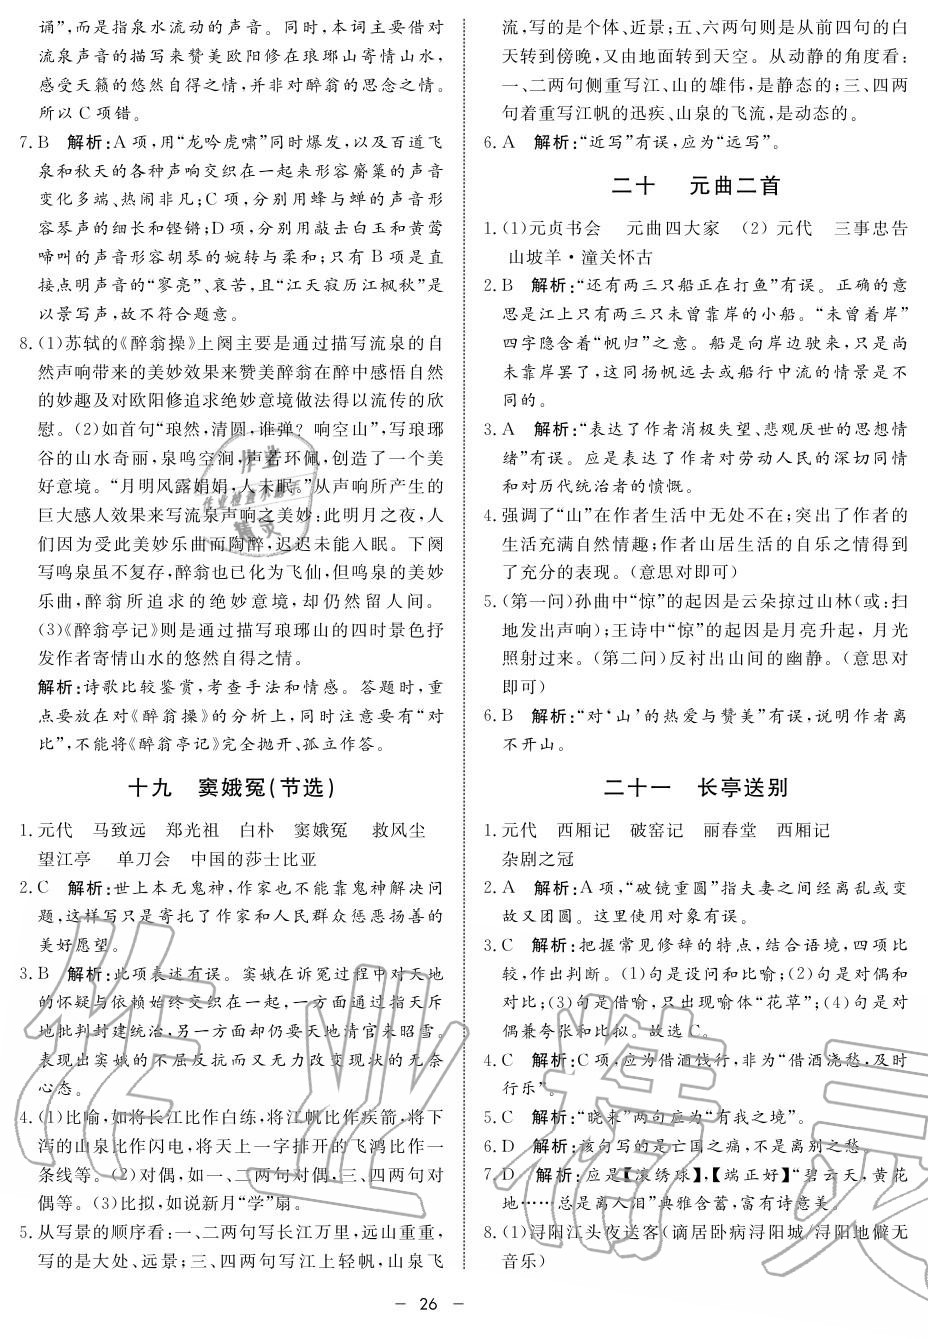 诵”,而是指泉水流动的声音。本词主要借对
流泉声音的描写来赞美欧阳修在琅琊山寄情山水,
感受天籁的悠然自得之情,并非对醉翁的思念之情。
所以C项错。
7. B 解析:A项,用“龙吟虎啸”同时爆发,以及百道飞
泉和秋天的各种声响交织在一起来形容觱篥的声音
变化多端、热闹非凡;C项,分别用蜂与蝉的声音形
容琴声的细长和铿锵;D项,分别用敲击白玉和黄莺
啼叫的声音形容胡琴的婉转与柔和;只有B项是直
接点明声音的“寥亮”、哀苦,且“江天寂历江枫秋”是
以景写声,故不符合题意。
8. (1)苏轼的《醉翁操》上阕主要是通过描写流泉的自
然声响带来的美妙效果来赞美醉翁在醉中感悟自然
的妙趣及对欧阳修追求绝妙意境做法得以流传的欣
慰。(2)如首句“琅然,清圆,谁弹?响空山”,写琅琊
谷的山水奇丽,泉鸣空涧,声若环佩,创造了一个美
好意境。“月明风露娟娟,人未眠。”从声响所产生的
巨大感人效果来写流泉声响之美妙:此明月之夜,人
们因为受此美妙乐曲而陶醉,迟迟未能入眠。下阕
写鸣泉虽不复存,醉翁也已化为飞仙,但鸣泉的美妙
乐曲,醉翁所追求的绝妙意境,却仍然留人间。
(3)《醉翁亭记》则是通过描写琅琊山的四时景色抒
发作者寄情山水的悠然自得之情。
解析:诗歌比较鉴赏,考查手法和情感。答题时,重
点要放在对《醉翁操》的分析上,同时注意要有“对
比”,不能将《醉翁亭记》完全抛开、孤立作答。
十九 窦娥冤(节选)
1. 元代 马致远 郑光祖 白朴 窦娥冤 救风尘
望江亭 单刀会 中国的莎士比亚
2. C 解析:世上本无鬼神,作家也不能靠鬼神解决问
题,这样写只是寄托了作家和人民群众惩恶扬善的
美好愿望。
3. B 解析:此项表述有误。窦娥在诉冤过程中对天地
的怀疑与依赖始终交织在一起,一方面通过指天斥
地批判封建统治,另一方面却仍要天地清官来昭雪。
表现出窦娥的不屈反抗而又无力改变现状的无奈
心态。
4. (1)比喻,如将长江比作白练,将江帆比作疾箭,将下
泻的山泉比作闪电,将天上一字排开的飞鸿比作一
条线等。(2)对偶,如一、二两句对偶,三、四两句对
偶等。(3)比拟,如说新月“学”扇。
5. 从写景的顺序看:一、二两句写长江万里,远山重重,
写的是大处、远景;三、四两句写江上轻帆,山泉飞
流,写的是个体、近景;五、六两句则是从前四句的白
天转到傍晚,又由地面转到天空。从动静的角度看:
一、二两句侧重写江、山的雄伟,是静态的;三、四两
句着重写江帆的迅疾、山泉的飞流,是动态的。
6. A 解析:“近写”有误,应为“远写”。
二十 元曲二首
1. (1)元贞书会 元曲四大家 (2)元代 三事忠告
山坡羊·潼关怀古
2. B 解析:“还有两三只船正在打鱼”有误。正确的意
思是江上只有两三只未曾靠岸的小船。“未曾着岸”
四字隐含着“帆归”之意。船是向岸边驶来,只是尚
未靠岸罢了,这同扬帆远去或船行中流的情景是不
同的。
3. A 解析:“表达了作者消极失望、悲观厌世的思想情
绪”有误。应是表达了作者对劳动人民的深切同情
和对历代统治者的愤慨。
4. 强调了“山”在作者生活中无处不在;突出了作者的
生活充满自然情趣;作者山居生活的自乐之情得到
了充分的表现。(意思对即可)
5. (第一问)孙曲中“惊”的起因是云朵掠过山林(或:扫
地发出声响);王诗中“惊”的起因是月亮升起,月光
照射过来。(第二问)反衬出山间的幽静。(意思对
即可)
6. B 解析:“对‘山’的热爱与赞美”有误,说明作者离
不开山。
二十一 长亭送别
1. 元代 西厢记 破窑记 丽春堂 西厢记
杂剧之冠
2. A 解析:A项,“破镜重圆”指夫妻之间经离乱或变
故又团圆。这里使用对象有误。
3. C 解析:把握常见修辞的特点,结合语境,四项比
较,作出判断。(1)句是设问和比喻;(2)句是对偶和
对比;(3)句是借喻,只出现喻体“花草”;(4)句是对
偶兼夸张和比拟。故选C。
4. C 解析:C项,应为借酒饯行,非为“借酒浇愁,及时
行乐”。
5. C 解析:“晓来”两句应为“有我之境”。
6. D 解析:该句写的是亡国之痛,不是离别之愁。
7. D 解析:应是【滚绣球】,【端正好】“碧云天,黄花
地……总是离人泪”典雅含蓄,富有诗意美。
8. (1)浔阳江头夜送客(谪居卧病浔阳城/浔阳地僻无
音乐)
– 26 –